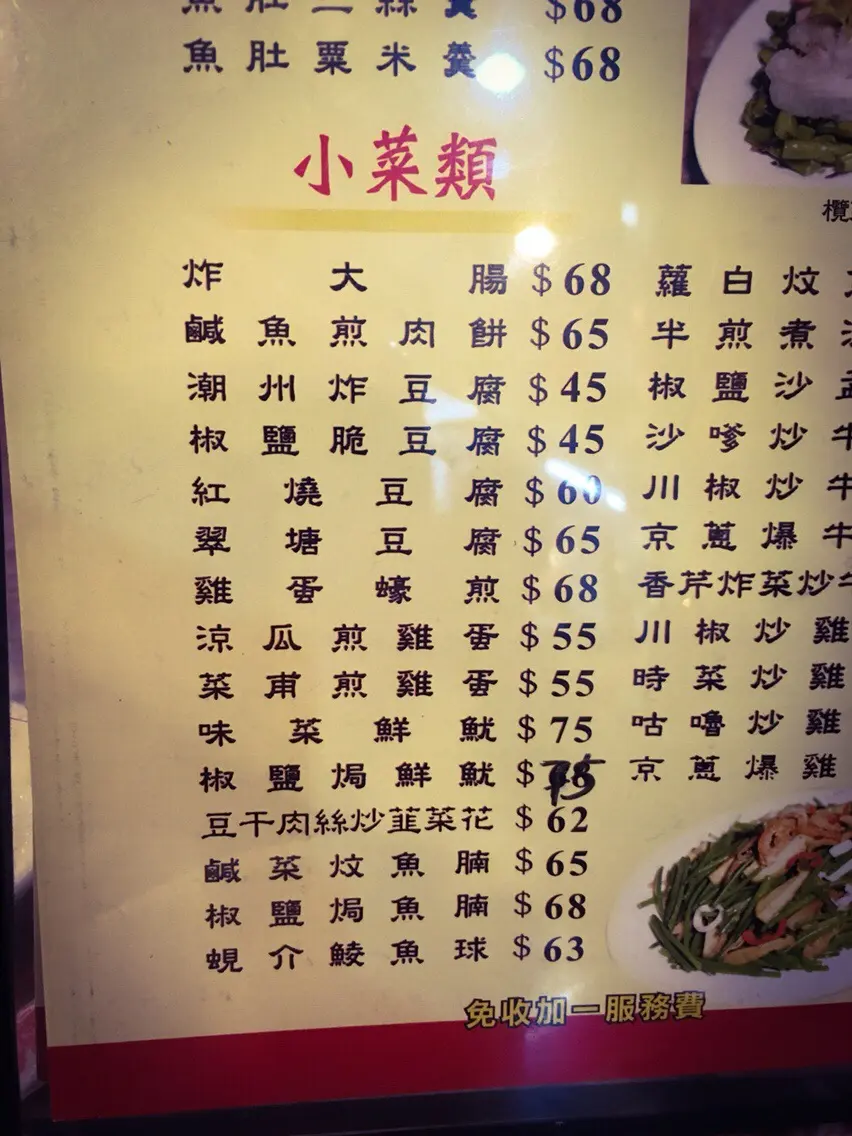 魚肚三絲羹 $68
魚肚粟米羹 $68
小菜類
炸大腸 $68
鹹魚煎肉餅 $65
潮州炸豆腐 $45
椒鹽脆豆腐 $45
紅燒豆腐 $60
翠塘豆腐 $65
雞蛋蠔煎 $68
涼瓜煎雞蛋 $55
菜甫煎雞蛋 $55
味菜鮮魷 $75
椒鹽焗鮮魷 $75
豆干肉絲炒韮菜花 $62
鹹菜炆魚腩 $65
椒鹽焗魚腩 $68
蜆介鯪魚球 $63
欖
蘿白炆
半煎煮
椒鹽沙
沙嗲炒牛
川椒炒牛
京蔥爆牛
香芹炸菜炒牛
川椒炒雞
時菜炒雞
咕嚕炒雞
京蔥爆雞
免收加一服務費